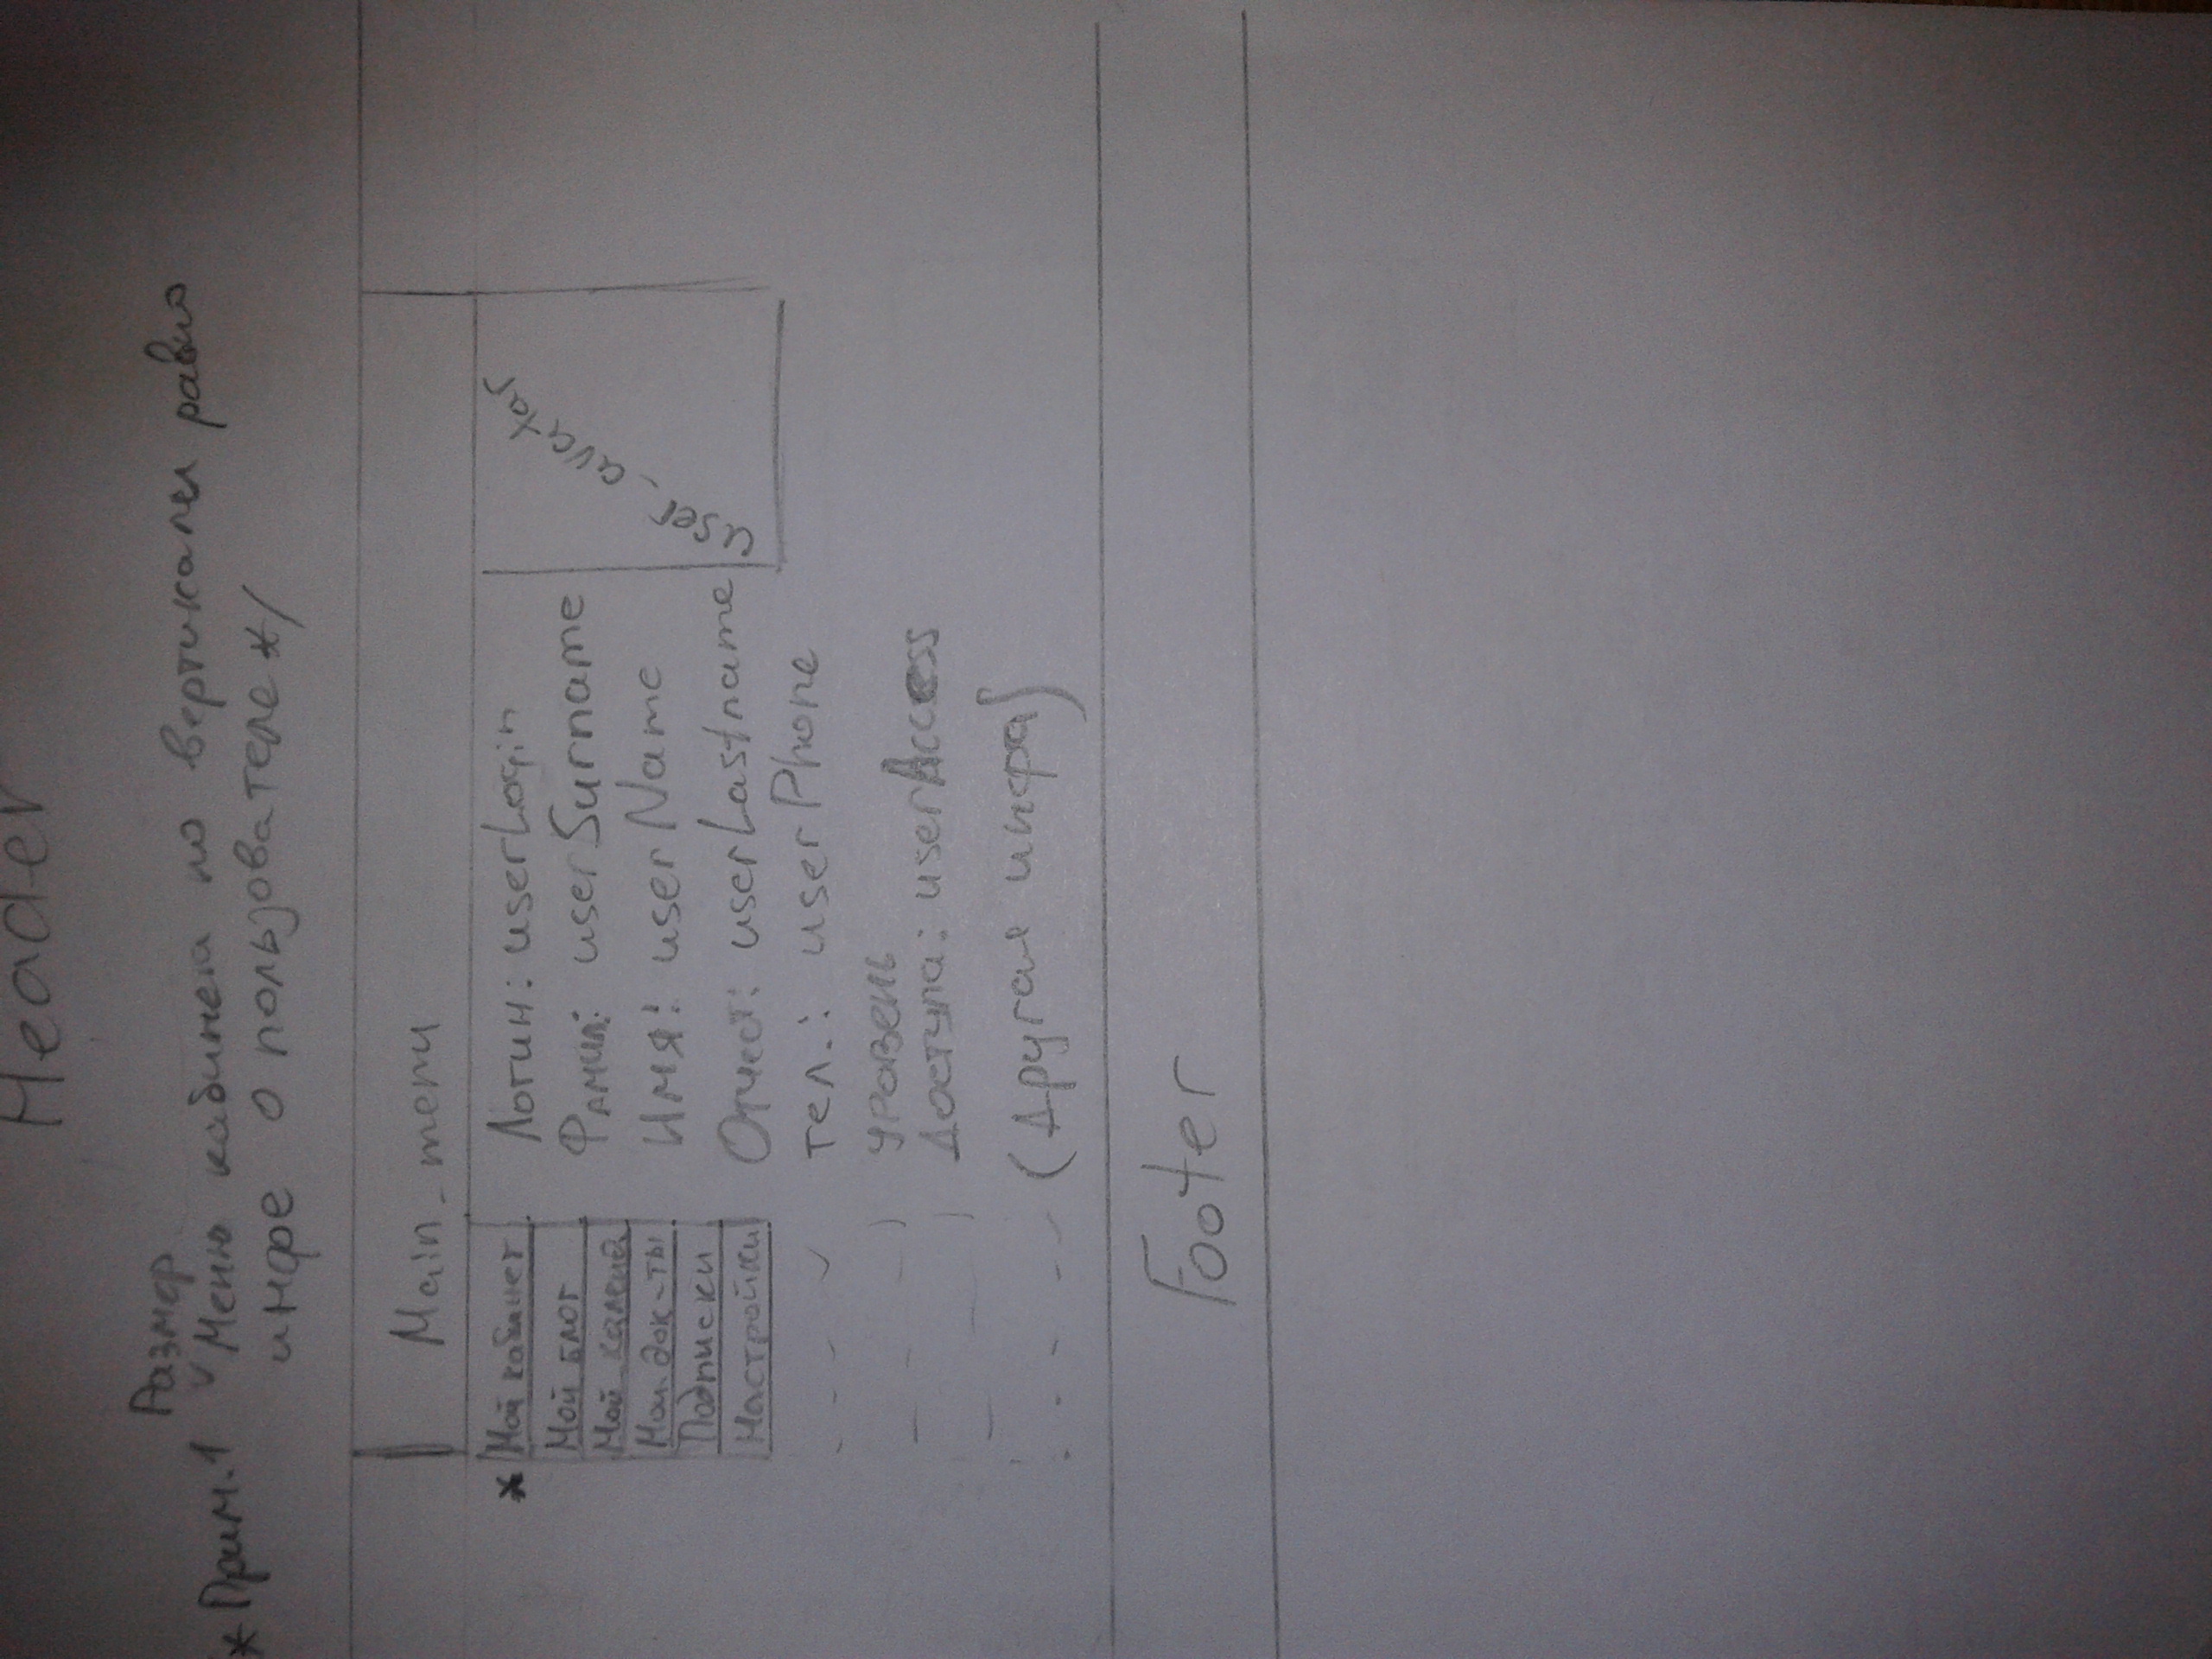 Header
Размер
* Прим.1 ∨ Меню кабинета по вертикали равно
инфе о пользователе */
Main_menu
* Мой кабинет
Мой блог
Мой календ
Мои док-ты
Подписки
Настройки
Логин: userLogin
Фамил: userSurname
Имя: userName
Отчест: userLastname
тел.: userPhone
уровень
доступа: userAccess
(другая инфа)
user_avatar
Footer